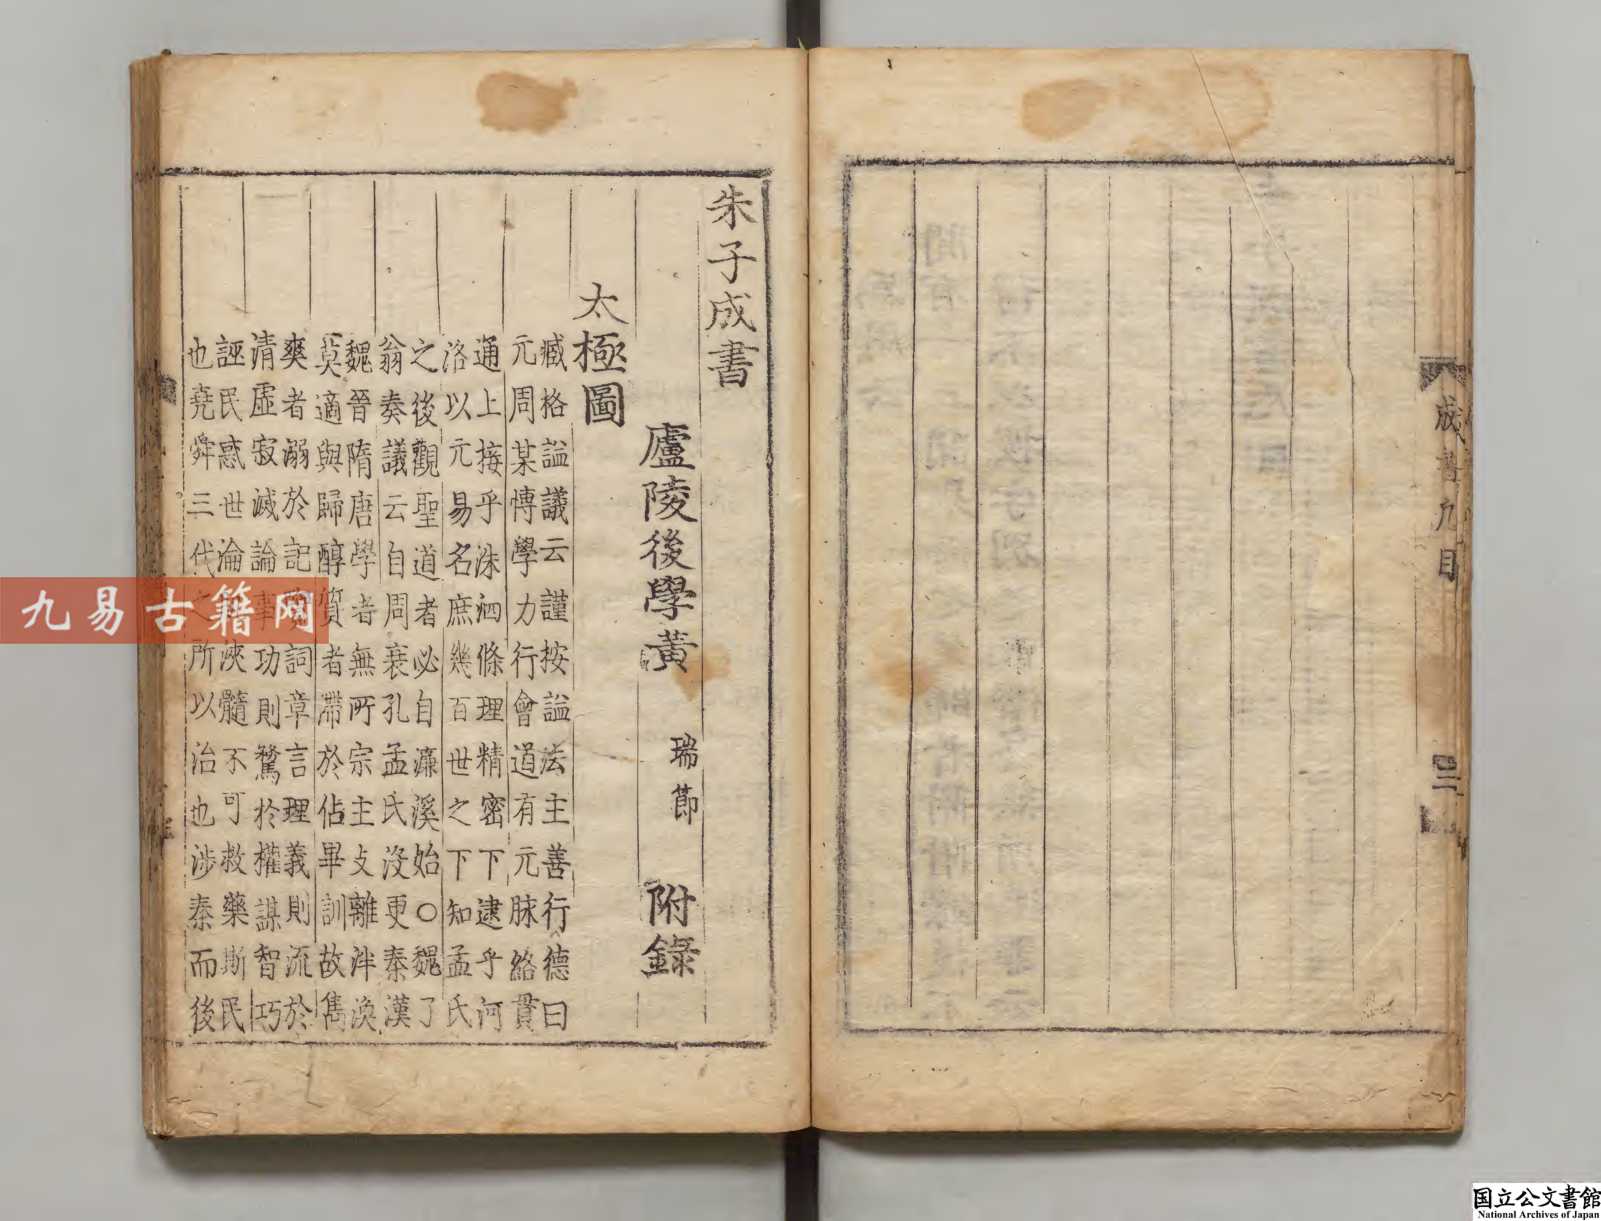 成書凡目
朱子成書
廬陵後學黃 瑞節 附錄
太極圖
臧格謚議云謹按謚法主善行德曰
元周某博學力行會道有元脉絡貫
通上接乎洙泗條理精密下逮乎河
洛以元易名庶幾百世之下知孟氏
之後觀聖道者必自濂溪始○魏了
翁奏議云自周衰孔孟氏沒更秦漢
魏晉隋唐學者無所宗主支離泮渙
莫適與歸醇質者滯於佔畢訓故雋
爽者溺於記詞章言理義則流於
清虛寂滅論事功則騖於權謀智巧
誣民惑世淪浹髓不可救藥斯民
也堯舜三代之所以治也涉秦而後
九易古籍网
国立公文書館
National Archives of Japan